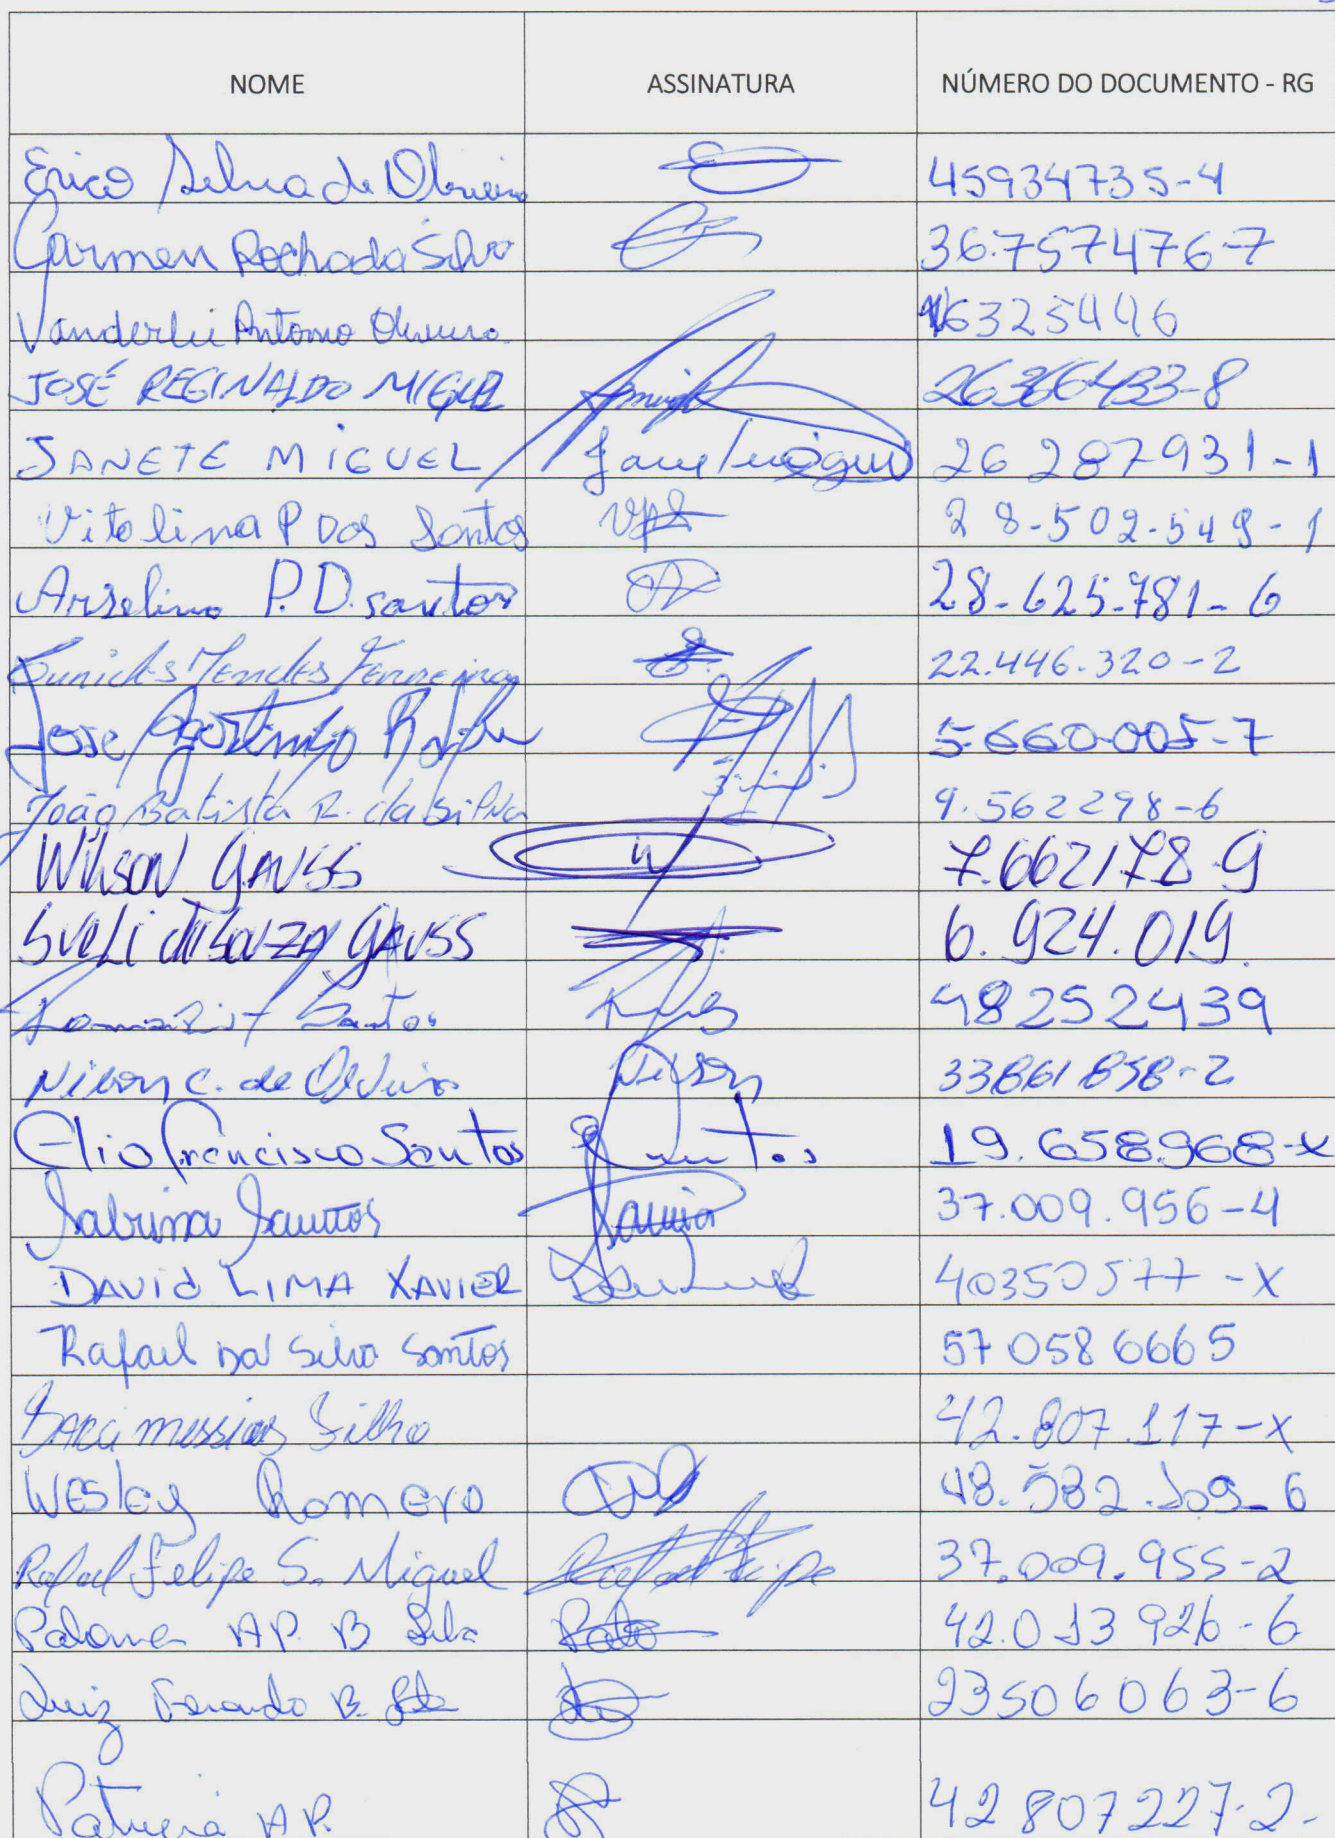 NOME ASSINATURA NÚMERO DO DOCUMENTO - RG
Erico Silva de Oliveira 45934735-4
Carmen Rocha da Silva 36.757476-7
Vanderlei Antonio Oliveira 16325446
JOSÉ REGINALDO MIGUEL 26366433-8
JANETE MIGUEL 26 287931-1
Vitolina P Dos Santos 28-502-549-1
Anselino P. D. santos 28-625-781-6
Eunides Mendes Ferreira 22.446.320-2
Jose Agostinho 5-660-005-7
João Batista R. da Silva 9.562298-6
WILSON GAUSS 7.662178-9
SUELI de SOUZA GAUSS 6.924.019.
Santos 48252439
Nilson C. de Oliveira Nilson 33861858-2
Elio Francisco Santos Santos 19.658968-x
Sabrina Santos 37.009.956-4
DAVID LIMA XAVIER 40350577-X
Rafael Da Silva Santos 57 058 6665
messias Filho 42.807.117-x
WESley Romero 48.582.109-6
Rafael Felipe S. Miguel Rafael Felipe 37.009.955-2
Paloma AP. B Silva 42.013926-6
Luiz Fernando B. Silva 23506063-6
Patricia AP. 42 807227-2-